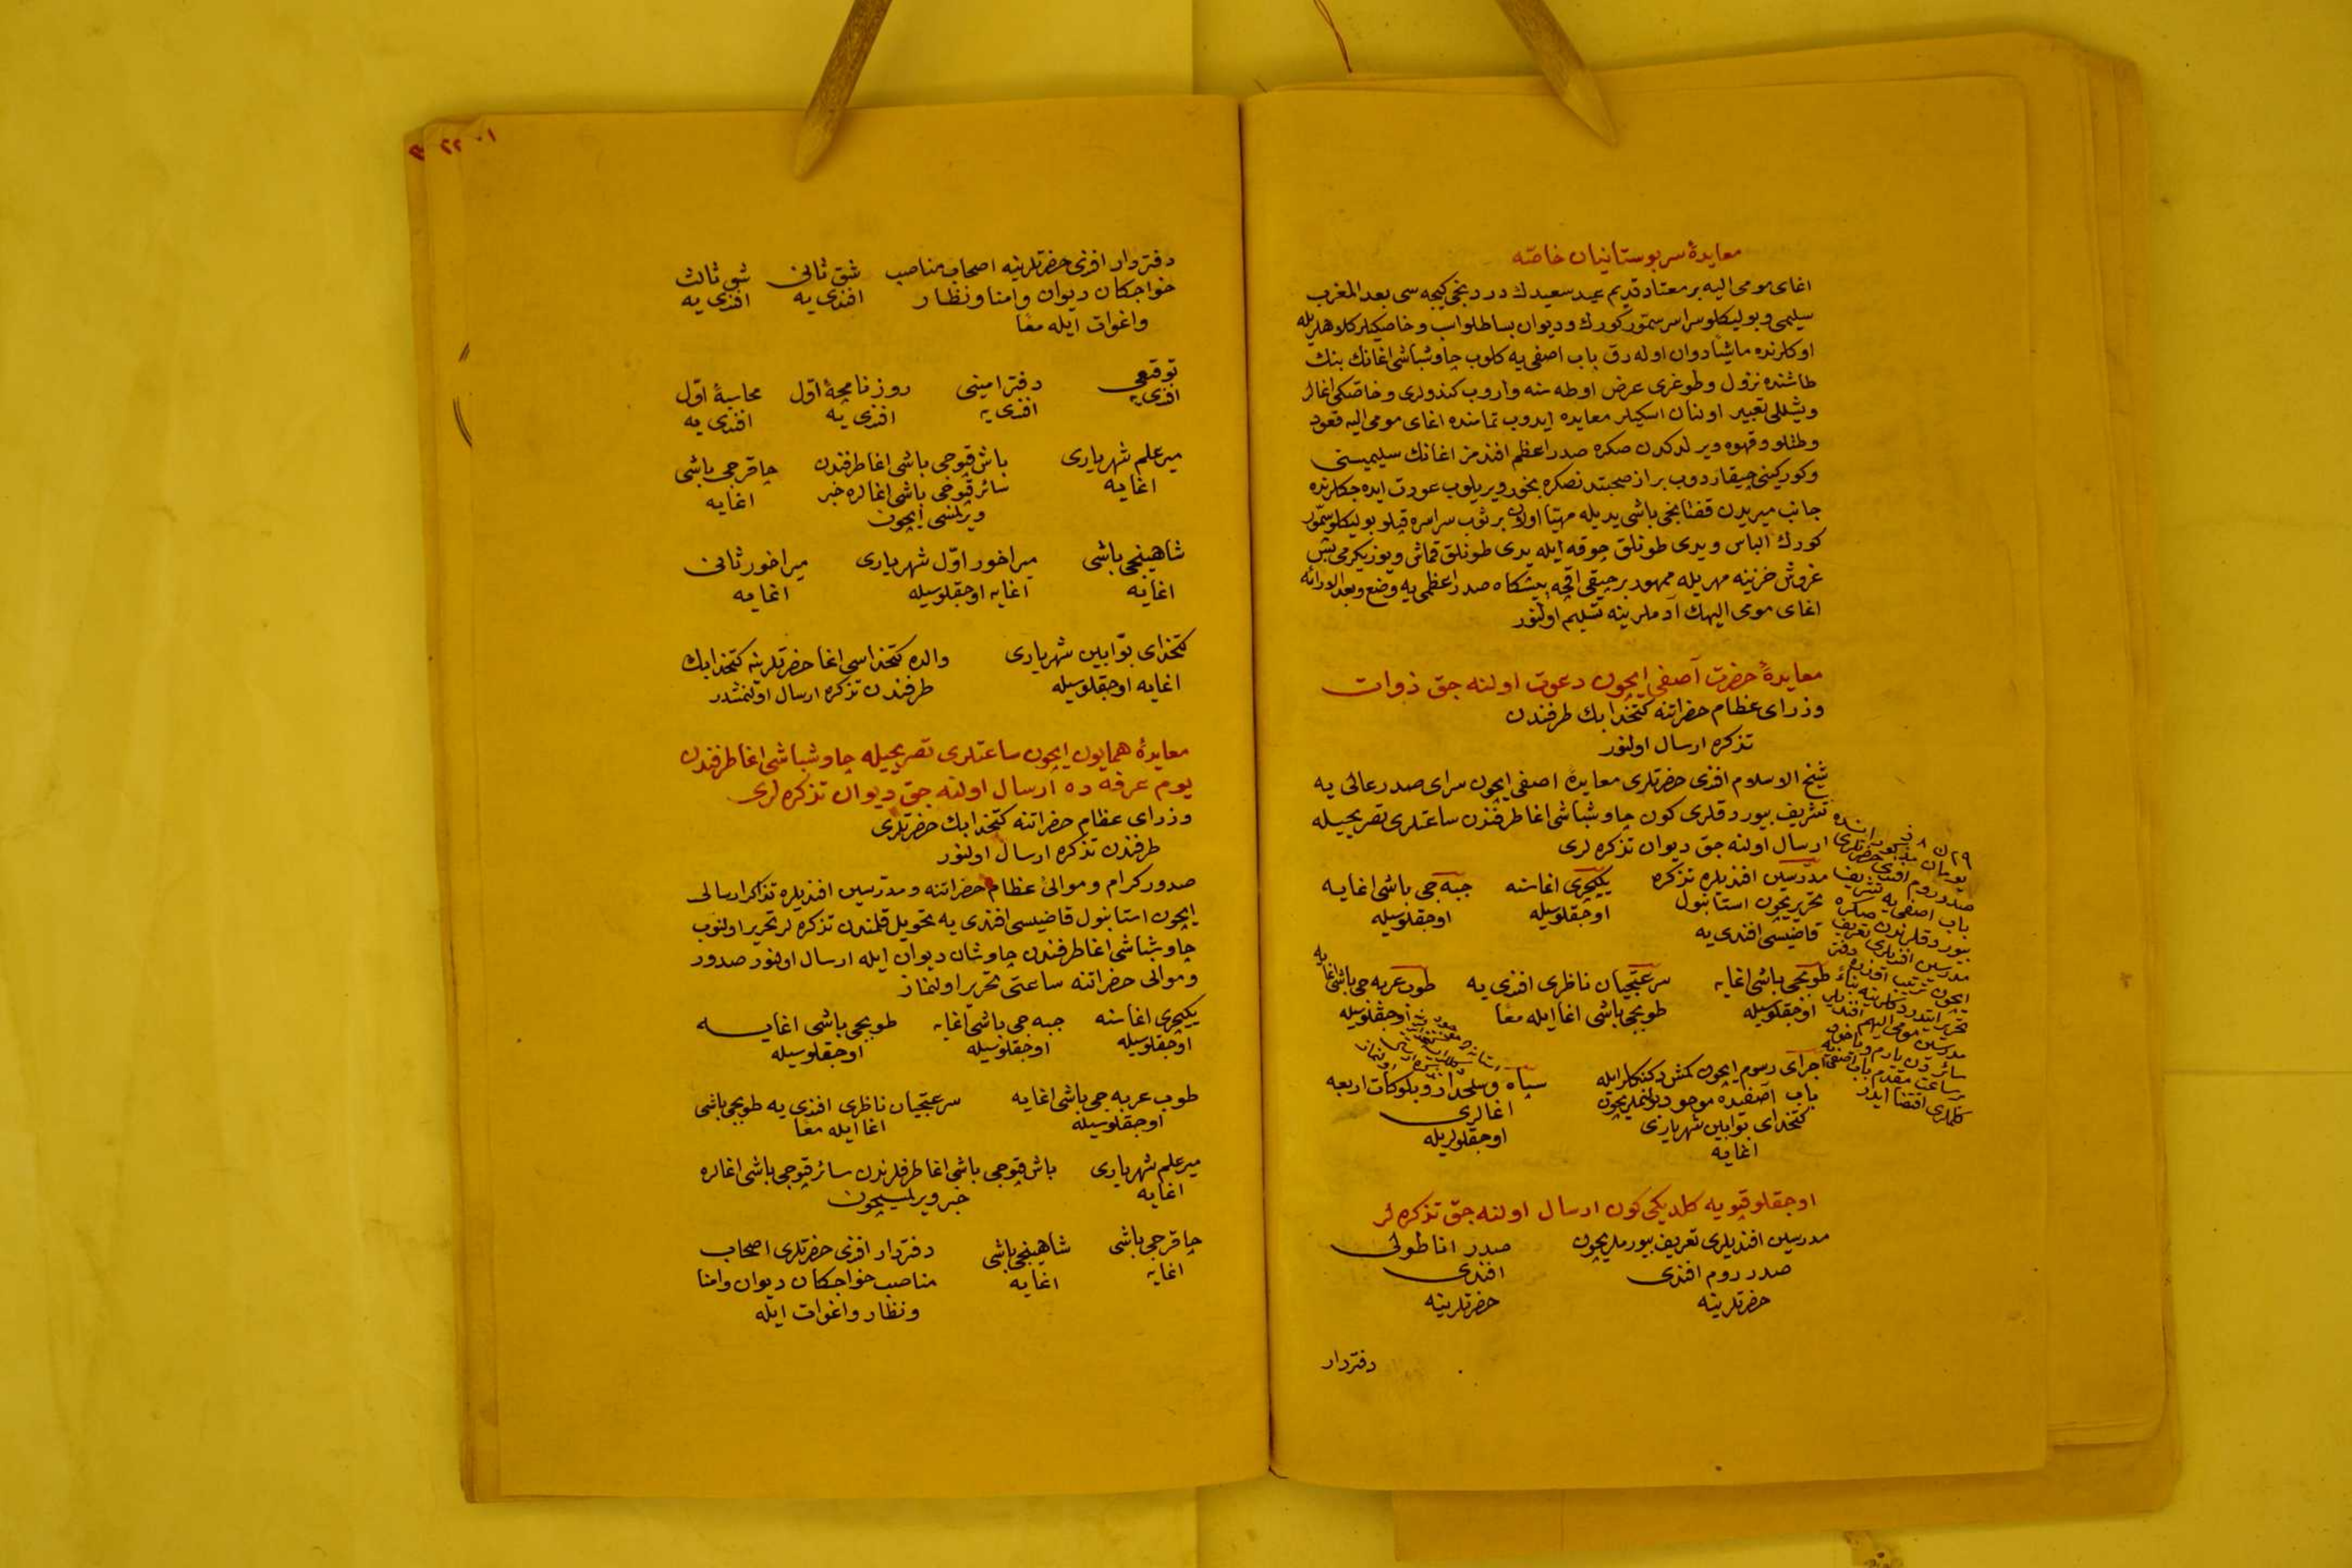 معایدۀ سربوستانیان خاصّه
اغای مومی الیه بر معتاد قدیم عید سعیدك دردنجی کیجه سی بعد المغرب
سلیمی و بولیکلو سراسر سمّور کورك و دیوان بساطلو اسب و خاصکیلر کلاهلریله
اوکلرنده ماشیًا روان اوله رق باب اصفی یه کلوب چاوشباشی اغانك بنك
طاشنده نزول و طوغری عرض اوطه سنه واروب کندولری و خاصّکی اغالر
وشللی تعبیر اولنان اسکیلر معایده ایدوب تمامنده اغای مومی الیه قعود
وطتلو و قهوه ویرلدکدن صکره صدراعظم افندمز اغانك سلیمیسنی
وکورکینی چیقاردوب براز صحبتدنصکره بخور ویریلوب عودت ایده جکلرنده
جانب میریدن قفتانجی باشی یدیله مهیّا اولان بر ثوب سراسره قپلو بولیکلو سمّور
کورك الباس ویدی طونلق چوقه ایله یدی طونلق قماش و یوز یکرمی بش
غروش خزینه مهریله ممهور بر چیقی اقچه پیشکاه صدراعظمی یه وضع و بعد الارائه
اغای مومی الیهك آدملرینه تسلیم اولنور
معایدۀ حضرت آصفی ایچون دعوت اولنه جق ذوات
وزرای عظام حضراتنه کتخدابك طرفندن
تذکره ارسال اولنور
شیخ الاسلام افندی حضرتلری معایدۀ اصفی ایچون سرای صدرعالی یه
تشریف بیوردقلری کون چاوشباشی اغا طرفندن ساعتلری تصریحیله
ارسال اولنه جق دیوان تذکره لری
مدرّسین افندیلره تذکره تحریریچون استانبول قاضیسی افندی یه
یکیچری اغاسنه اوجقلوسیله
جبه جی باشی اغایه اوجقلوسیله
طوپچی باشی اغایه اوجقلوسیله
سرعتجیان ناظری افندی یه طوپچی باشی اغا ایله معًا
طوپ عربه جی باشی اغایه اوجقلوسیله
اجرای رسوم ایچون کمش دکنکلر ایله
باب آصفیده موجود بولنملریچون
کتخدای بوّابین شهریاری
اغایه
سپاه و سلحدار و بلوکات اربعه
اغالری
اوجقلولریله
٢٩ ن ٨
صدر روم افندی حضرتلری
باب اصفی یه تشریف
بیوردقلرندن صکره
مدرسین افندیلری تعریف
اوجقلو قپویه کلدیکی کون ارسال اولنه جق تذکره لر
مدرسین افندیلری تعریف بیورملریچون
صدر روم افندی
حضرتلرینه
صدر اناطولی
افندی
حضرتلرینه
دفتردار
دفتردار افندی حضرتلرینه اصحاب مناصب
خواجکان دیوان وامنا ونظار
واغوات ایله معًا
شق ثانی
افندی یه
شق ثالث
افندی یه
توقیعی
افندی یه
دفتر امینی
افندی یه
روزنامچۀ اوّل
افندی یه
محاسبۀ اوّل
افندی یه
میرعلم شهریاری
اغایه
باش قپوجی باشی اغا طرفندن
سائر قپوجی باشی اغالره خبر
ویرلمسی ایچون
چاقرجی باشی
اغایه
شاهینجی باشی
اغایه
میراخور اوّل شهریاری
اغایه اوجقلوسیله
میراخور ثانی
اغایه
کتخدای بوّابین شهریاری
اغایه اوجقلوسیله
والده کتخداسی اغا حضرتلرینه کتخدابك
طرفندن تذکره ارسال اولنمشدر
معایدۀ همایون ایچون ساعتلری تصریحیله چاوشباشی اغا طرفندن
یوم عرفه ده ارسال اولنه جق دیوان تذکره لری
وزرای عظام حضراتنه کتخدابك حضرتلری
طرفندن تذکره ارسال اولنور
صدور کرام وموالئ عظام حضراتنه ومدرّسین افندیلره تذاکر ارسالی
ایچون استانبول قاضیسی افندی یه تحویل قلمندن تذکره لر تحریر اولنوب
چاوشباشی اغا طرفندن چاوشان دیوان ایله ارسال اولنور صدور
وموالی حضراتنه ساعتی تحریر اولنماز
یکیچری اغاسنه
اوجقلوسیله
جبه جی باشی اغایه
اوجقلوسیله
طوپجی باشی اغایه
اوجقلوسیله
طوپ عربه جی باشی اغایه
اوجقلوسیله
سرعتجیان ناظری افندی یه طوپجی باشی
اغا ایله معًا
میرعلم شهریاری
اغایه
باش قپوجی باشی اغا طرفلرندن سائر قپوجی باشی اغالره
خبر ویرلمسیچون
چاقرجی باشی
اغایه
شاهینجی باشی
اغایه
دفتردار افندی حضرتلری اصحاب
مناصب خواجکان دیوان وامنا
ونظار واغوات ایله